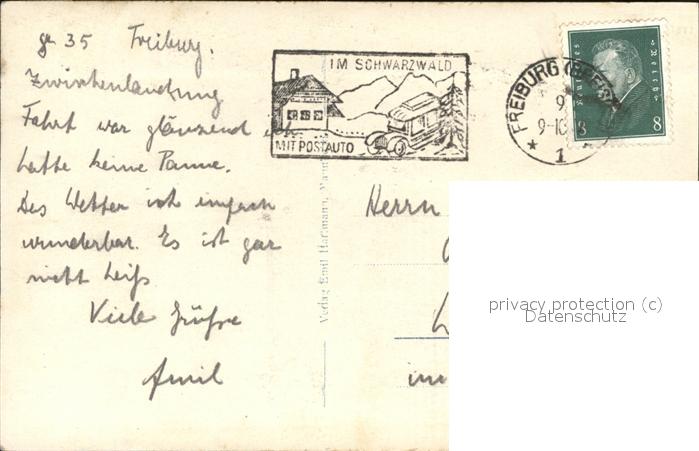 35 Freiburg.
Zwischenlandung
Fahrt war glänzend ich
hatte keine Panne.
Das Wetter ist einfach
wunderbar. Es ist gar
nicht heiß
Viele Grüße
Emil
IM SCHWARZWALD
MIT POSTAUTO
FREIBURG (BREISG
9
9-10
* 1
Deutsches Reich
8 8
Verlag Emil Hartmann, Mann
Herrn
privacy protection (c)
Datenschutz